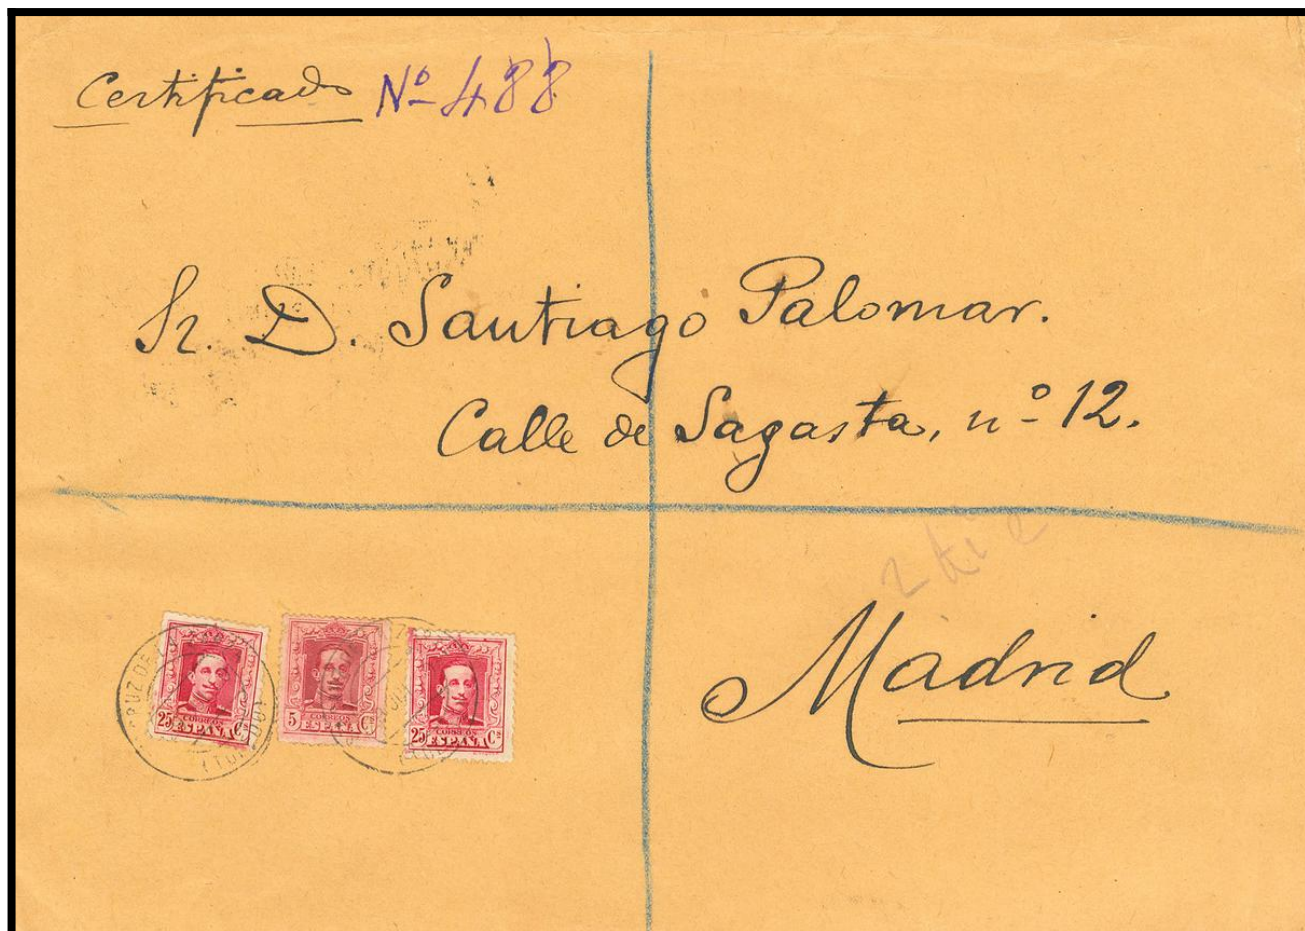 Certificado Nº 488
Sr. D. Santiago Palomar.
Calle de Sagasta, nº 12.
Madrid
25 CORREOS Cs
ESPAÑA
5 CORREOS Cs
ESPAÑA
25 CORREOS Cs
ESPAÑA